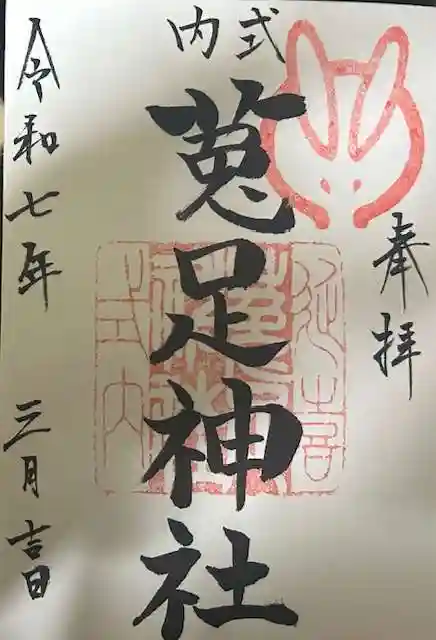 奉拝
式内
菟足神社
令和七年 三月吉日
延喜
式内